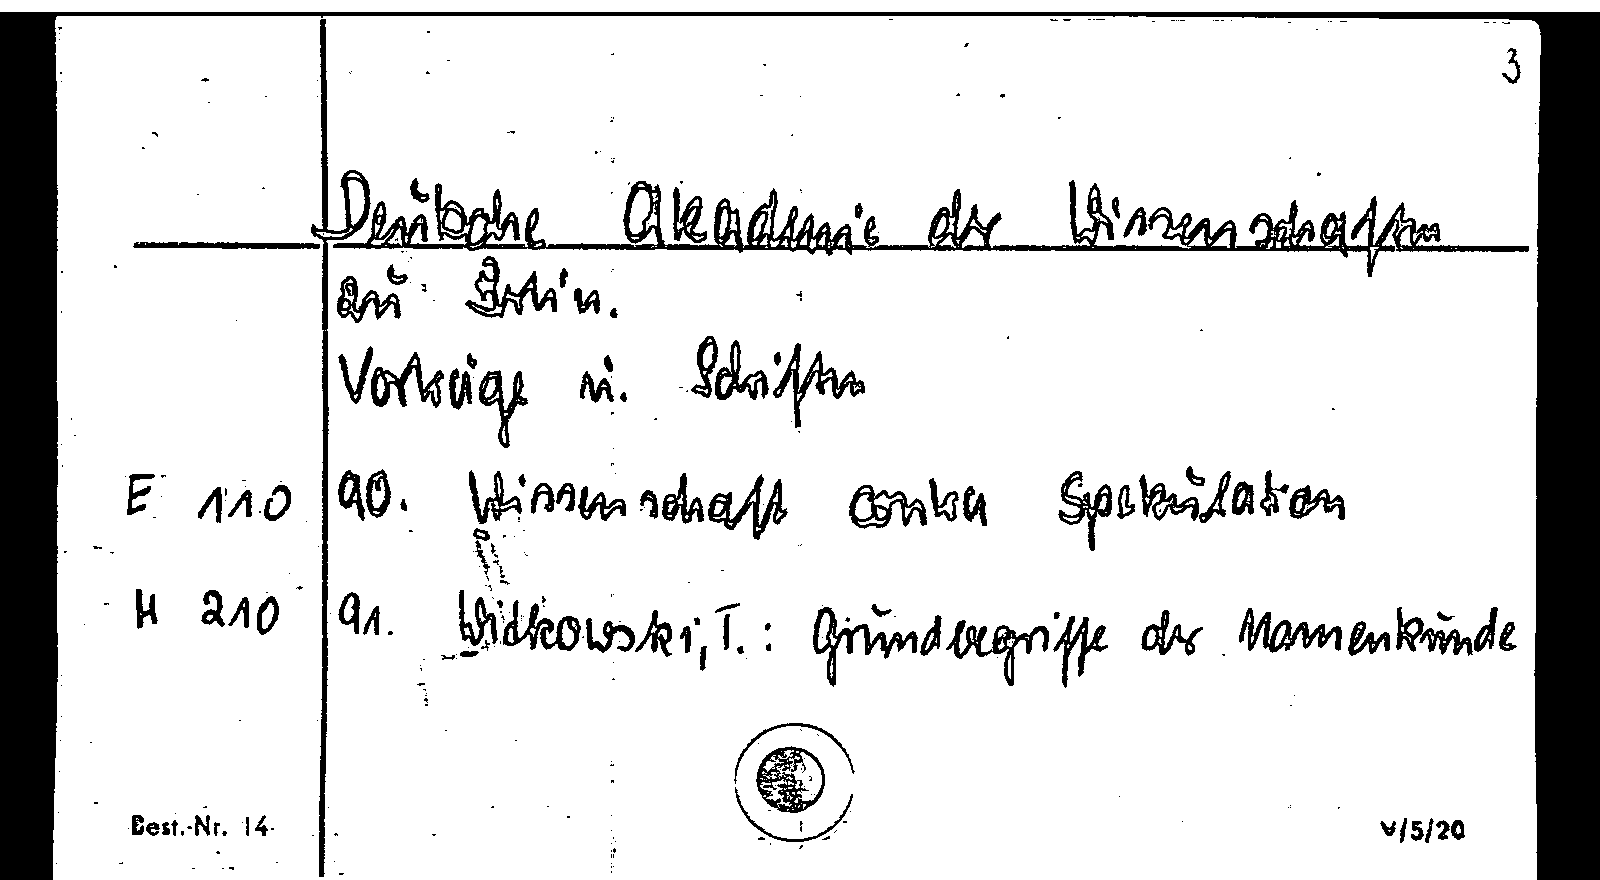 3
Deutsche Akademie der Wissenschaften
zu Berlin.
Vorträge u. Schriften
E 110 90. Wissenschaft contra Spekulation
H 210 91. Witkowski, T.: Grundbegriffe der Namenkunde
Best.-Nr. 14 V/5/20